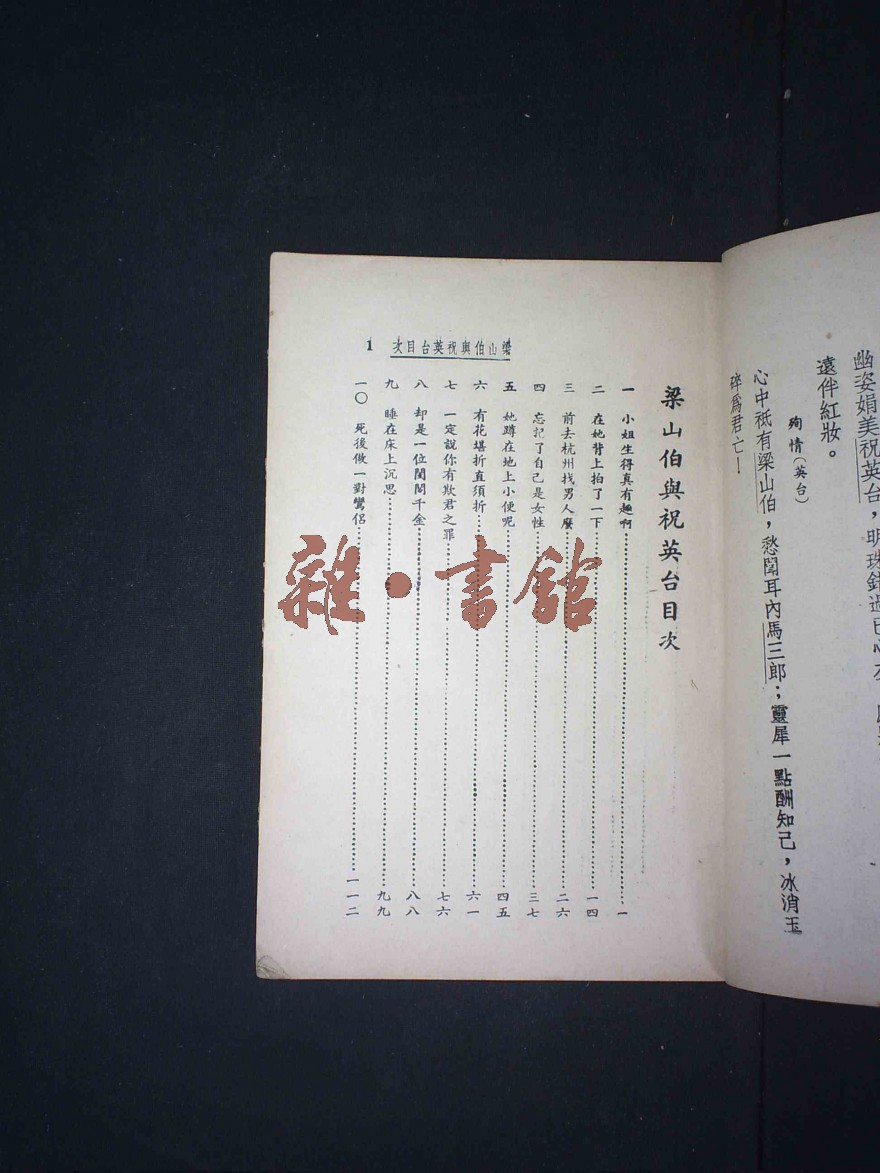 幽姿娟美祝英台，明珠錯過已心
遠伴紅妝。
殉情（英台）
心中祇有梁山伯，愁聞耳內馬三郎；靈犀一點酬知己，冰消玉
碎爲君亡！
梁山伯與祝英台目次
一 小姐生得真有趣啊 一
二 在她背上拍了一下 一四
三 前去杭州找男人麼 二六
四 忘記了自己是女性 三七
五 她蹲在地上小便呢 四五
六 有花堪折直須折 六一
七 一定說你有欺君之罪 七六
八 却是一位閨閣千金 八八
九 睡在床上沉思 九九
一〇 死後做一對鸞侶 一一二
次目台英祝與伯山梁 1
雜·書館